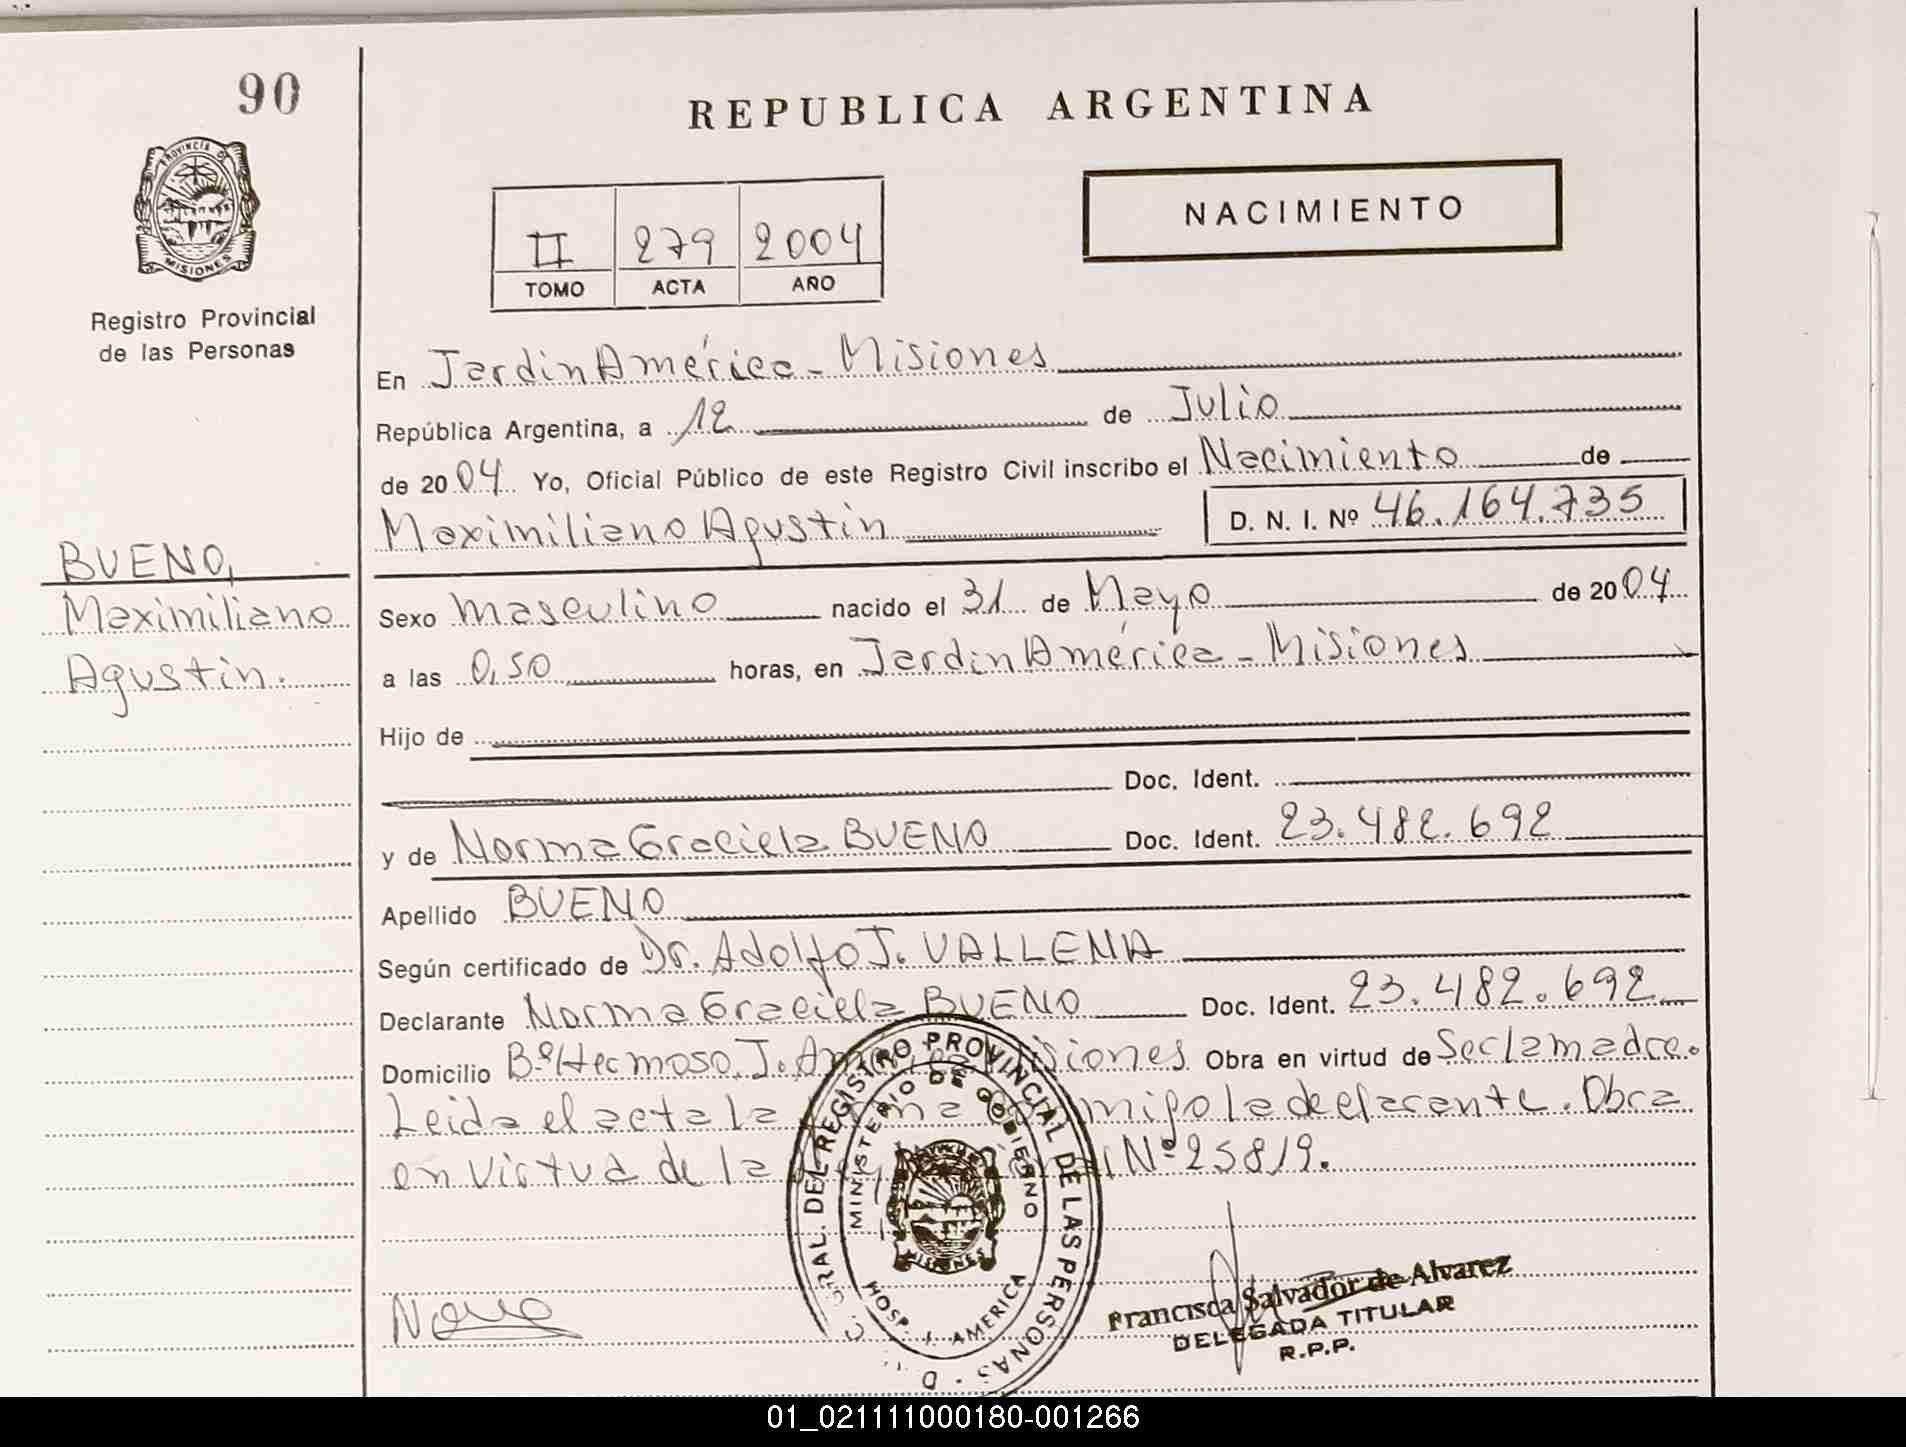 90
REPUBLICA ARGENTINA
PROVINCIA DE
MISIONES
Registro Provincial
de las Personas
NACIMIENTO
II 279 2004
TOMO ACTA AÑO
En Jardin América - Misiones
República Argentina, a 12 de Julio
de 2004 Yo, Oficial Público de este Registro Civil inscribo el Nacimiento de
Maximiliano Agustin D. N. I. Nº 46.164.735
BUENO,
Maximiliano
Agustin.
Sexo masculino nacido el 31 de Mayo de 2004
a las 0,50 horas, en Jardin América - Misiones
Hijo de
Doc. Ident.
y de Norma Graciela BUENO Doc. Ident. 23.482.692
Apellido BUENO
Según certificado de Dr. Adolfo J. VALLEMA
Declarante Norma Graciela BUENO Doc. Ident. 23.482.692
Domicilio Bº Hermoso, J. América Misiones Obra en virtud de Ser la madre.
Leida el acta la firma conmigo la declarante. Obra
en virtud de la Ley Nº 25819.
GRAL. DEL REGISTRO PROVINCIAL DE LAS PERSONAS
MINISTERIO DE GOBIERNO
MISIONES
HOSP. J. AMERICA
Francisca Salvador de Alvarez
DELEGADA TITULAR
R.P.P.
01_021111000180-001266